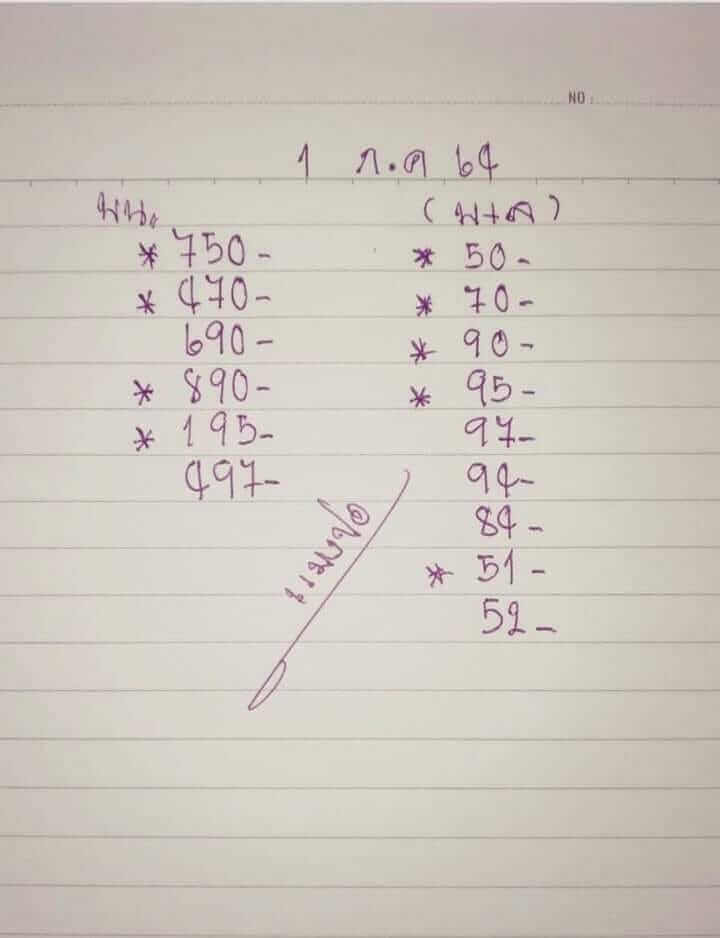 NO :
1 ก.ค 64
บน. (บ+ล)
* 750- * 50-
* 470- * 70-
690- * 90-
* 890- * 95-
* 195- 97-
497- 94-
84-
* 51-
52-